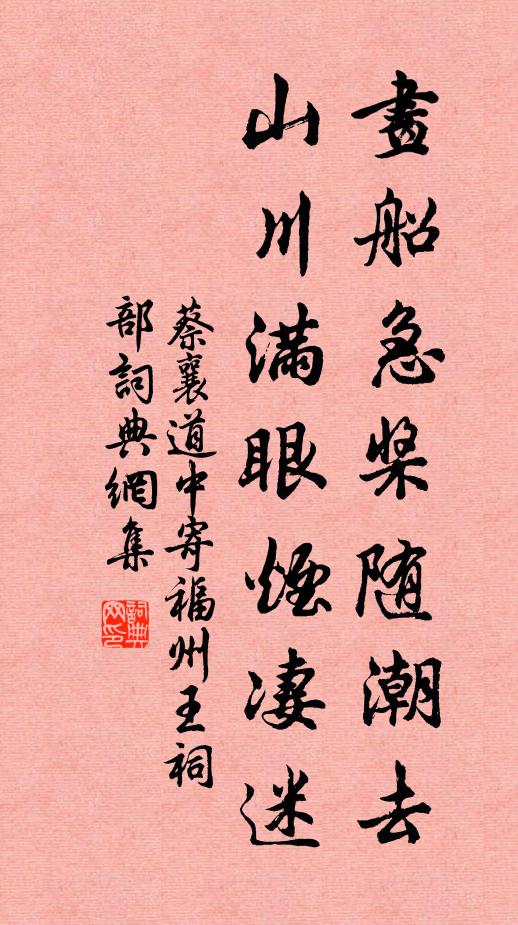 畫船急槳随潮去
山川滿眼煙淒迷
蔡襄道中寄福州王祠
部詞典網集
詞典
网印